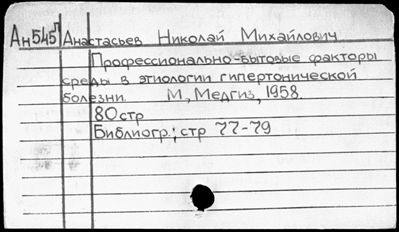 Ан545п Анастасьев Николай Михайлович
Профессионально-бытовые факторы
среды в этиологии гипертонической
болезни. М, Медгиз, 1958.
80стр
Библиогр.; стр 77-79